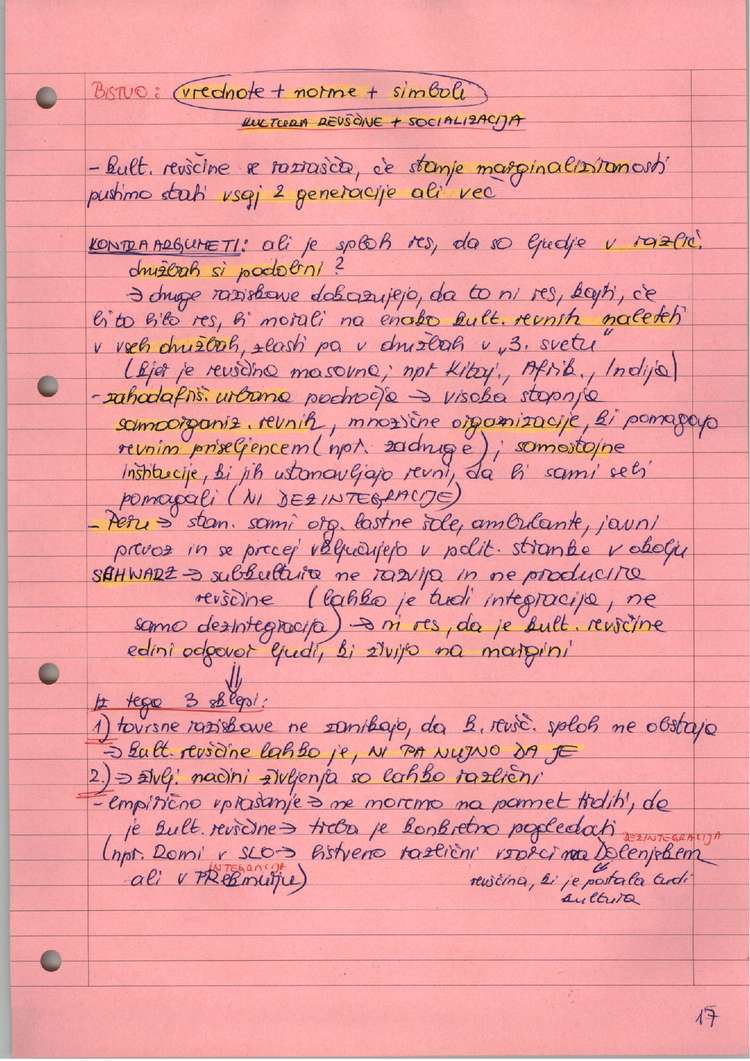 BISTVO: vrednote + norme + simboli
KULTURA REVŠČINE + SOCIALIZACIJA
- kult. revščine se razrašča, če stanje marginaliziranosti
pustimo stati vsaj 2 generacije ali več
KONTRA ARGUMETI: ali je sploh res, da so ljudje v različ.
družbah si podobni?
→ druge raziskave dokazujejo, da to ni res, kajti, če
bi to bilo res, bi morali na enako kult. revnih naleteti
v vseh družbah, zlasti pa v družbah v "3. svetu"
(kjer je revščina masovna; npr Kitaj., Afrik., Indija)
- zahodafriš. urbana področja → visoka stopnja
samoorganiz. revnih, množične organizacije, ki pomagajo
revnim priseljencem (npr. zadruge); samostojne
institucije, ki jih ustanavljajo revni, da bi sami sebi
pomagali (NI DEZINTEGRACIJE)
- Peru → stan. sami org. lastne šole, ambulante, javni
prevoz in se precej vključujejo v polit. stranke v okolju
SCHWARZ → subkultura ne razvija in ne producira
revščine (lahko je tudi integracija, ne
samo dezintegracija) → ni res, da je kult. revščine
edini odgovor ljudi, ki živijo na margini
⇓
Iz tega 3 sklepi:
1) tovrsne raziskave ne zanikajo, da k. revšč. sploh ne obstaja
→ kult. revščine lahko je, NI PA NUJNO DA JE
2) → življ. načini življenja so lahko različni
- empirično vprašanje → ne moremo na pamet trditi, da
je kult. revščine → treba je konkretno pogledati
DEZINTEGRACIJA
(npr. Romi v SLO → bistveno različni vzorci na Dolenjskem
INTEGRACIJA
ali v PREKmurju)
revščina, ki je postala tudi
kultura
17